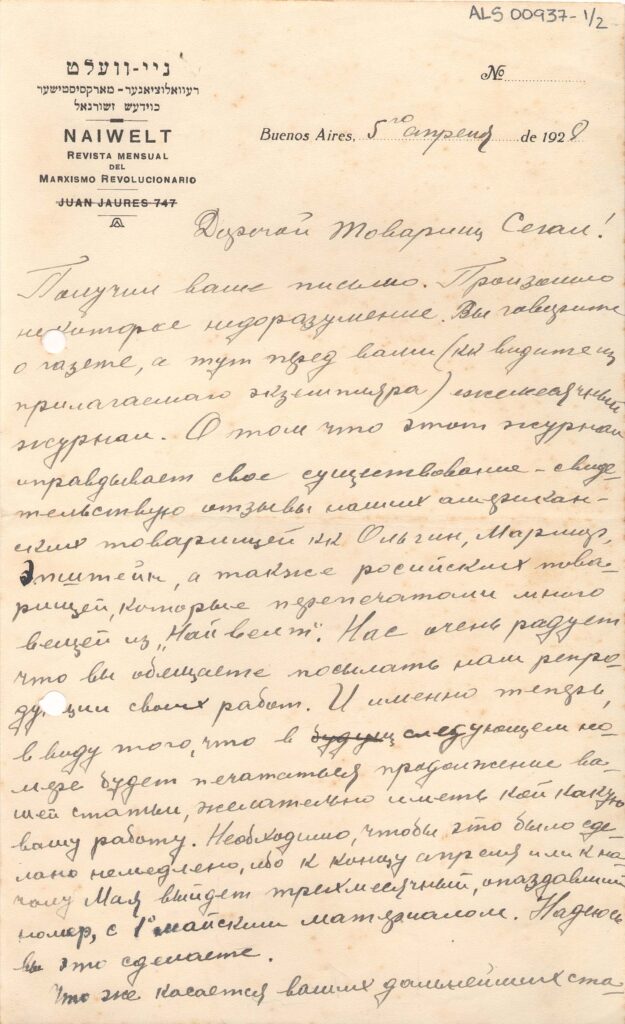 ALS 00937-1/2
ניי-וועלט
רעוואלוציאנער-מארקסיסטישער
כוידעש זשורנאל
NAIWELT
REVISTA MENSUAL
DEL
MARXISMO REVOLUCIONARIO
JUAN JAURES 747
№
Buenos Aires, 5го апреля de 1928
Дорогой товарищ Сегал!
Получил ваше письмо. Произошло
некоторое недоразумение. Вы говорите
о газете, а тут перед вами (кк видите из
прилагаемого экземпляра) ежемесячный
журнал. О том что этот журнал
оправдывает свое существование – свиде-
тельствую отзывы наших американ-
ских товарищей кк Ольгин,
Эпштейн, а также росийских това-
рищей, которые перепечатали много
вещей из „Найвелт". Нас очень радует
что вы обещаете посылать нам репро-
дукции своих работ. И именно теперь,
в виду того, что в будущ следующем но-
мере будет печататься продолжение ва-
шей статьи, желательно иметь кой какую
вашу работу. Необходимо, чтобы это было сде-
лано немедлено, ибо к концу апреля или к на-
чалу Мая выйдет трехмесячный, опаздавший
номер, с 1о майским матерьялом. Надеюсь
вы это сделаете.
Что же касается ваших дальнейших ста-